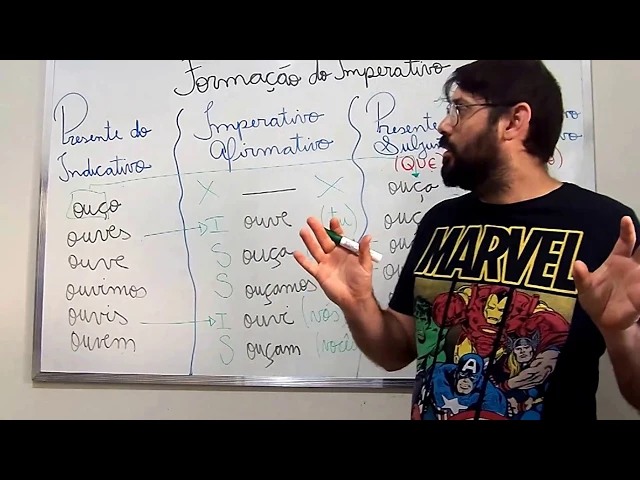 Formação do Imperativo
Presente do
Indicativo
ouço
ouves
ouve
ouvimos
ouvis
ouvem
Imperativo
Afirmativo
X — X
I ouve (tu)
S ouça
S ouçamos
I ouvi (vós
S ouçam (você
Presente
(QUE
ouça
MARVEL